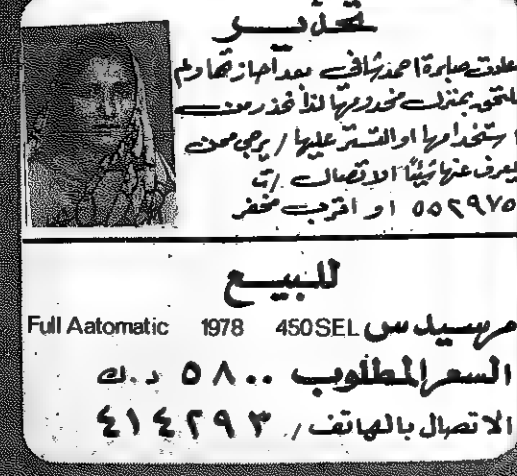 تحذير
عادت صابرة احمد شافى بعد اجازتها ولم
تلتحق بمنزل مخدومها لذا نحذر من
استخدامها او التستر عليها / يرجى ممن
يعرف عنها شيئاً الاتصال / ت
٥٥٢٩٧٥ او اقرب مخفر
للبيع
مرسيدس 450SEL 1978 Full Aatomatic
السعر المطلوب ٥٨٠٠ د.ك
الاتصال بالهاتف / ٤١٤٢٩٣